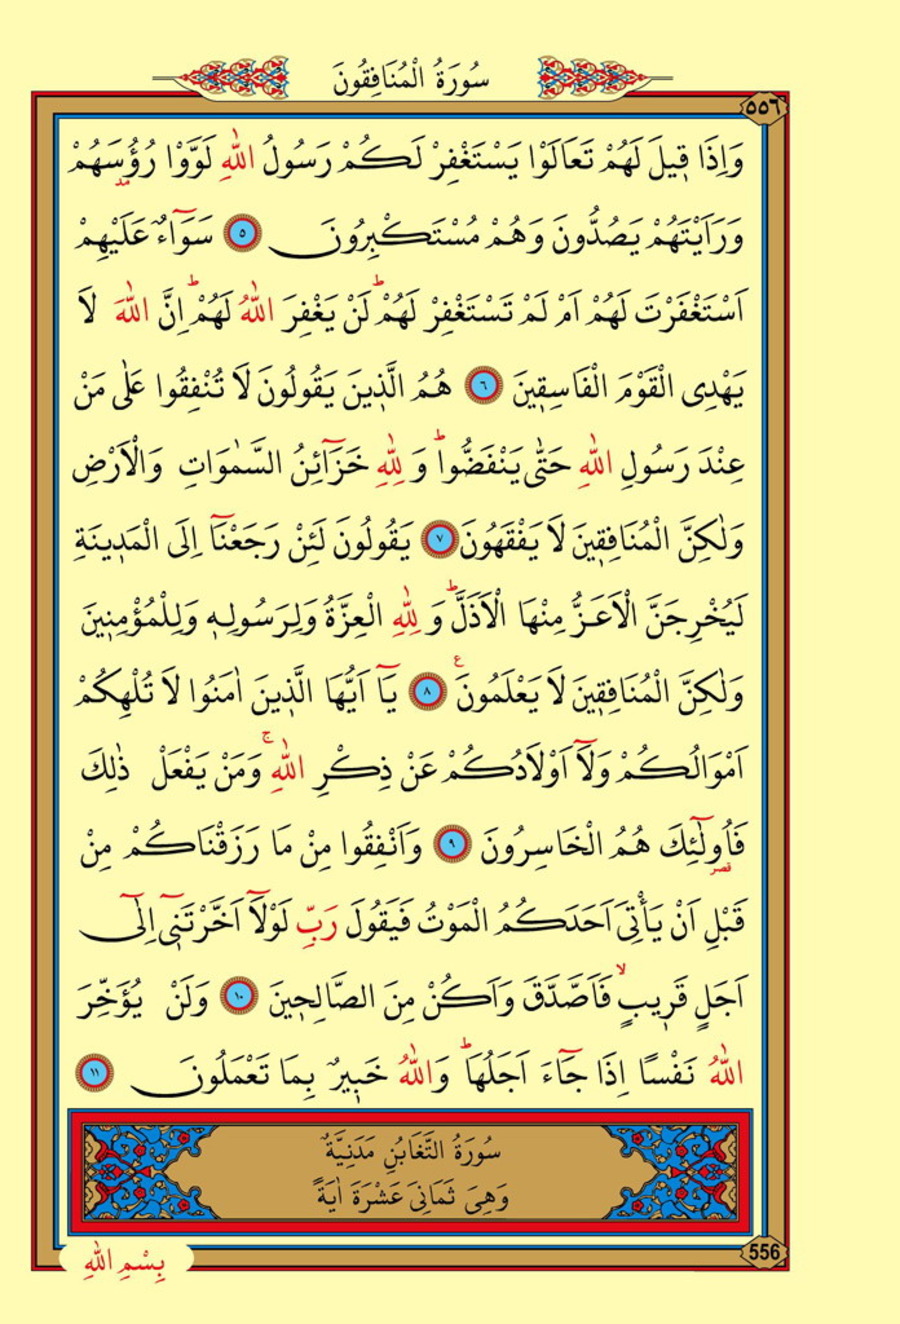 سُورَةُ الْمُنَافِقُونَ
٥٥٦
وَاِذَا قٖيلَ لَهُمْ تَعَالَوْا يَسْتَغْفِرْ لَكُمْ رَسُولُ اللّٰهِ لَوَّوْا رُؤُسَهُمْ
مد
وَرَاَيْتَهُمْ يَصُدُّونَ وَهُمْ مُسْتَكْبِرُونَ ٥ سَوَٓاءٌ عَلَيْهِمْ
اَسْتَغْفَرْتَ لَهُمْ اَمْ لَمْ تَسْتَغْفِرْ لَهُمْؕ لَنْ يَغْفِرَ اللّٰهُ لَهُمْؕ اِنَّ اللّٰهَ لَا
يَهْدِى الْقَوْمَ الْفَاسِقٖينَ ٦ هُمُ الَّذٖينَ يَقُولُونَ لَا تُنْفِقُوا عَلٰى مَنْ
عِنْدَ رَسُولِ اللّٰهِ حَتّٰى يَنْفَضُّواؕ وَ لِلّٰهِ خَزَٓائِنُ السَّمٰوَاتِ وَالْاَرْضِ
وَلٰكِنَّ الْمُنَافِقٖينَ لَا يَفْقَهُونَ ٧ يَقُولُونَ لَئِنْ رَجَعْنَٓا اِلَى الْمَدٖينَةِ
لَيُخْرِجَنَّ الْاَعَزُّ مِنْهَا الْاَذَلَّؕ وَ لِلّٰهِ الْعِزَّةُ وَلِرَسُولِهٖ وَلِلْمُؤْمِنٖينَ
وَلٰكِنَّ الْمُنَافِقٖينَ لَا يَعْلَمُونَ ع ٨ يَٓا اَيُّهَا الَّذٖينَ اٰمَنُوا لَا تُلْهِكُمْ
اَمْوَالُكُمْ وَلَٓا اَوْلَادُكُمْ عَنْ ذِكْرِ اللّٰهِۚ وَمَنْ يَفْعَلْ ذٰلِكَ
فَاُولٰٓئِكَ هُمُ الْخَاسِرُونَ ٩ وَاَنْفِقُوا مِنْ مَا رَزَقْنَاكُمْ مِنْ
قصر
قَبْلِ اَنْ يَاْتِىَ اَحَدَكُمُ الْمَوْتُ فَيَقُولَ رَبِّ لَوْلَٓا اَخَّرْتَنٖٓى اِلٰٓى
اَجَلٍ قَرٖيبٍۙ فَاَصَّدَّقَ وَاَكُنْ مِنَ الصَّالِحٖينَ ١٠ وَلَنْ يُؤَخِّرَ
اللّٰهُ نَفْسًا اِذَا جَٓاءَ اَجَلُهَاؕ وَاللّٰهُ خَبٖيرٌ بِمَا تَعْمَلُونَ ١١
سُورَةُ التَّغَابُنِ مَدَنِيَّةٌ
وَهِىَ ثَمَانِىَ عَشْرَةَ اٰيَةً
بِسْمِ اللّٰهِ
556